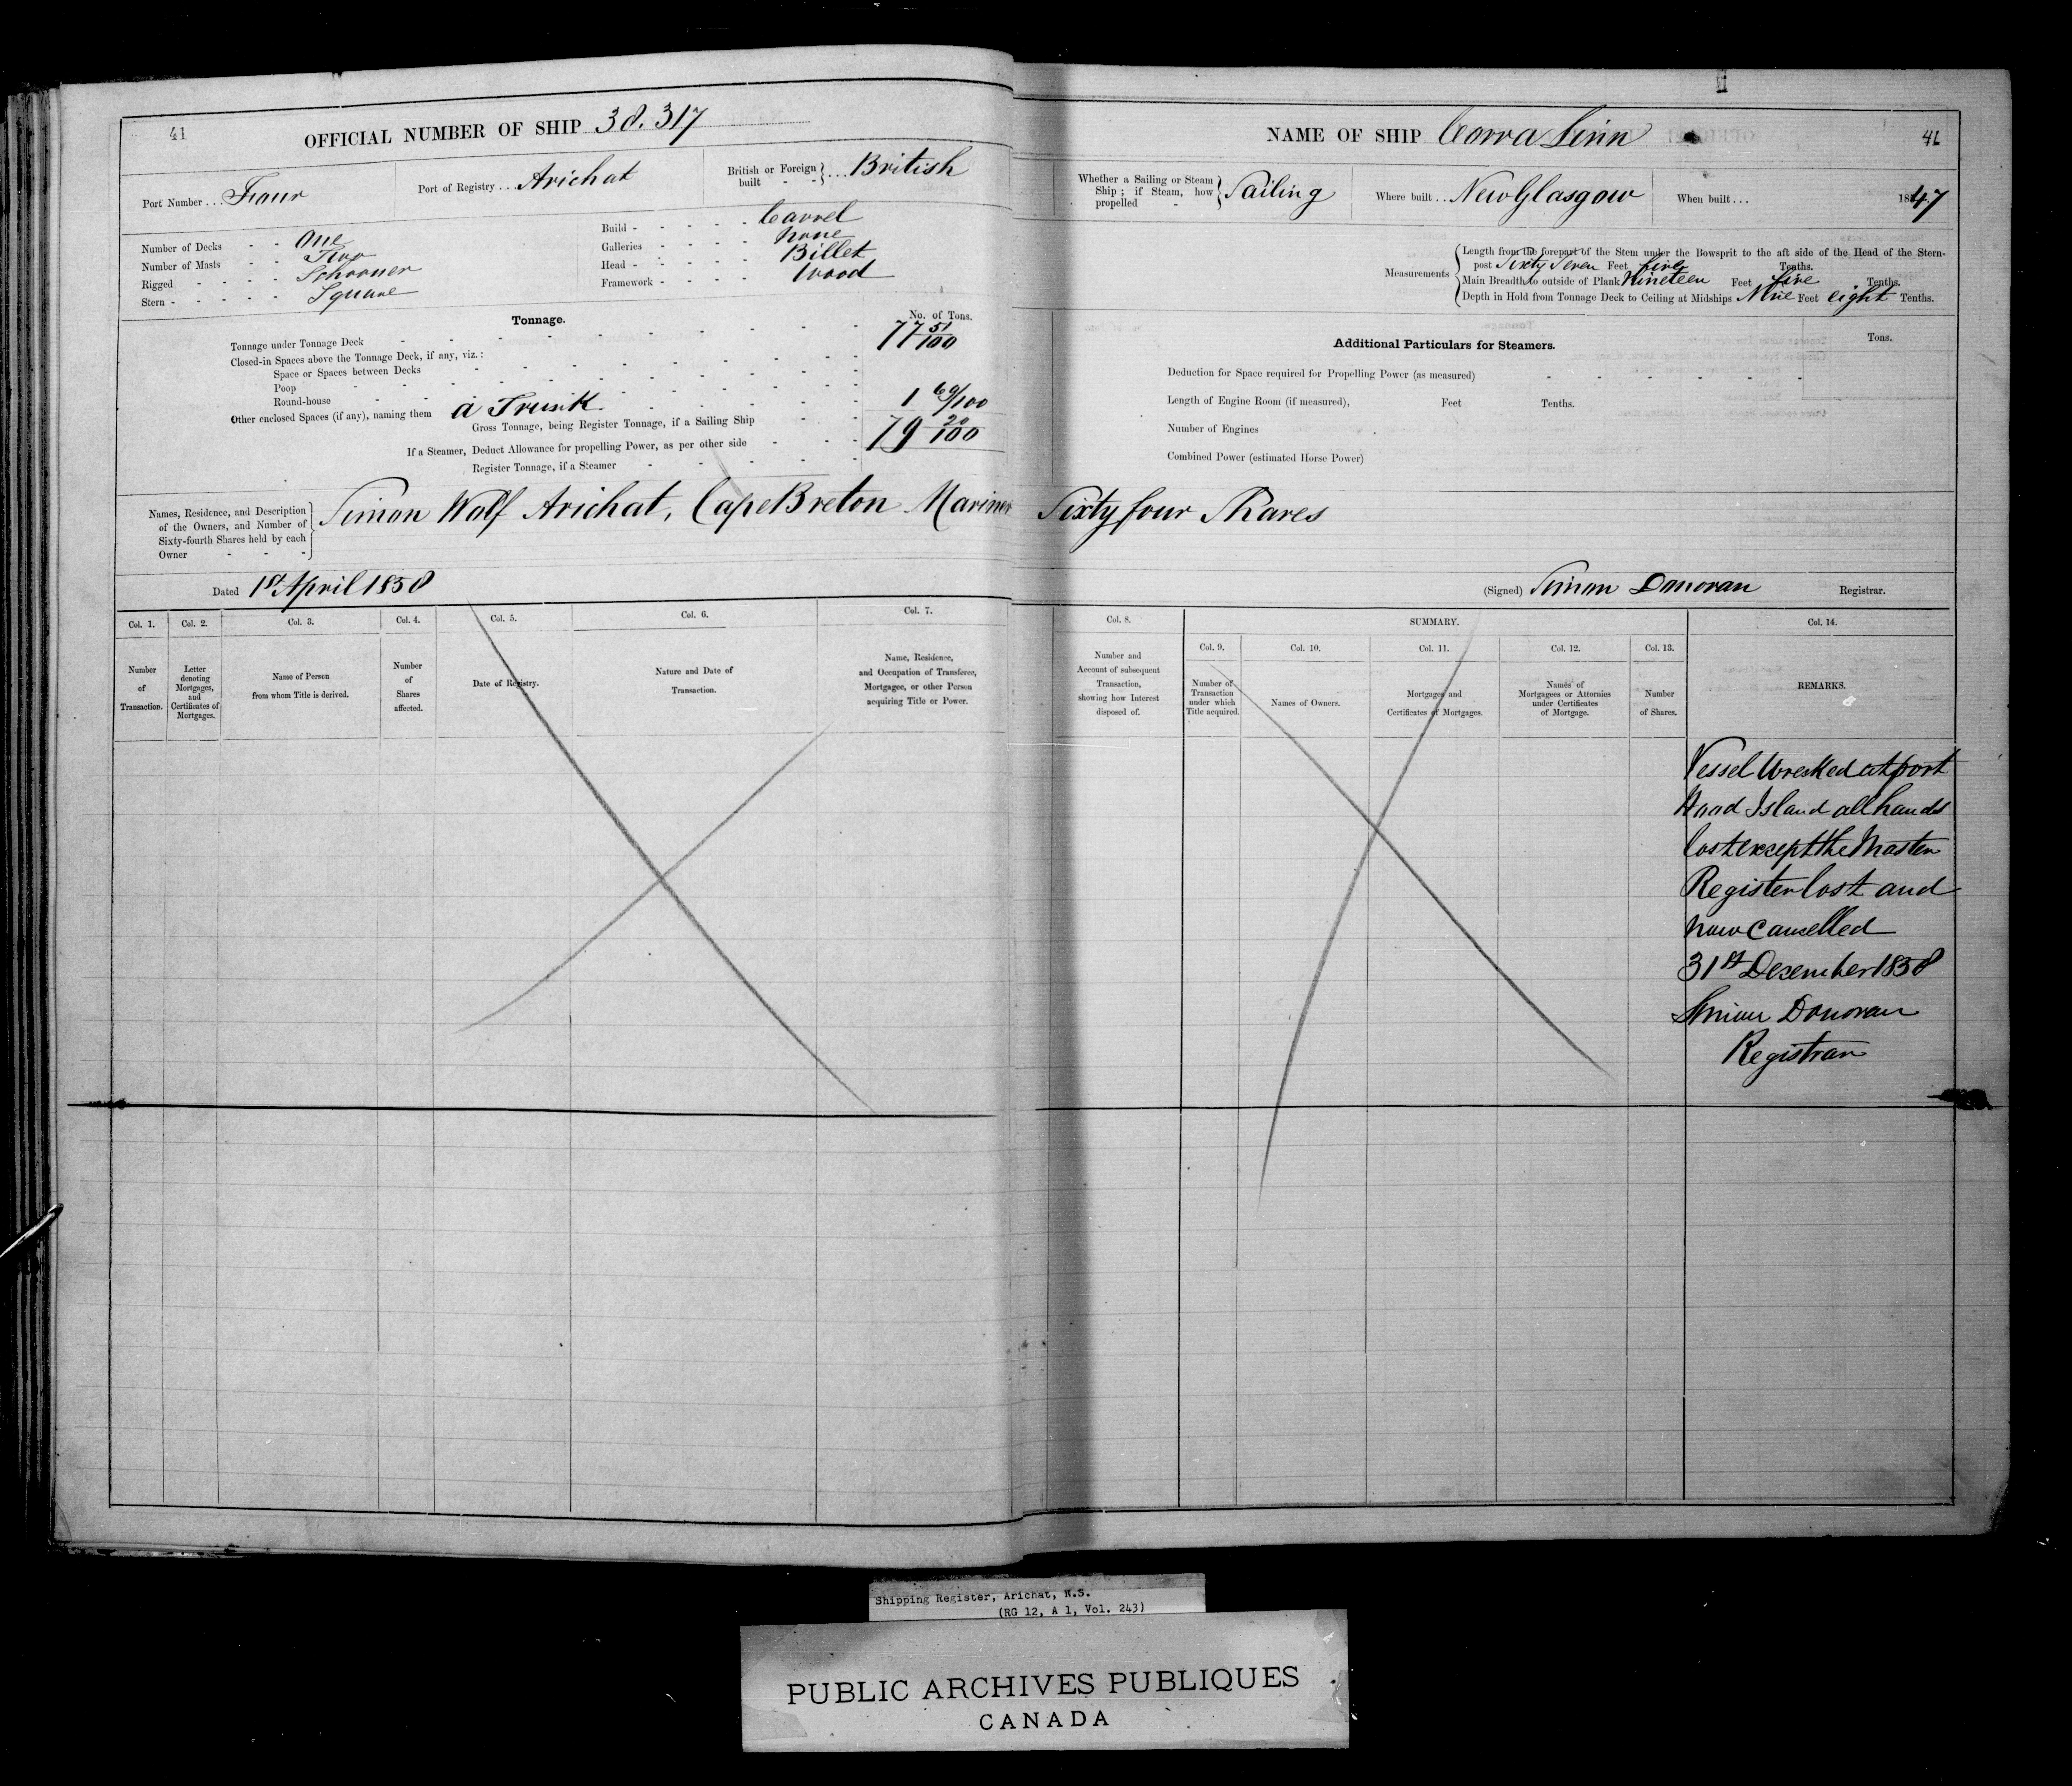 41
OFFICIAL NUMBER OF SHIP 38.317
Port Number . . . Four
Port of Registry . . . Arichat
British or Foreign built - - } . . . British
Number of Decks - - One
Number of Masts - - Two
Rigged - - - - Schooner
Stern - - - - - Square
Build - - - - - - Carvel
Galleries - - - - - none
Head - - - - - - Billet
Framework - - - - Wood
Tonnage.
No. of Tons.
Tonnage under Tonnage Deck 77 51/100
Closed-in Spaces above the Tonnage Deck, if any, viz. :
Space or Spaces between Decks
Poop
Round-house
Other enclosed Spaces (if any), naming them a Trunk 1 69/100
Gross Tonnage, being Register Tonnage, if a Sailing Ship 79 20/100
If a Steamer, Deduct Allowance for propelling Power, as per other side
Register Tonnage, if a Steamer
Names, Residence, and Description
of the Owners, and Number of
Sixty-fourth Shares held by each
Owner - - -
Simon Wolf Arichat, Cape Breton Mariner
Dated 1st April 1858
Col. 1. Number of Transaction.
Col. 2. Letter denoting Mortgages, and Certificates of Mortgages.
Col. 3. Name of Person from whom Title is derived.
Col. 4. Number of Shares affected.
Col. 5. Date of Registry.
Col. 6. Nature and Date of Transaction.
Col. 7. Name, Residence, and Occupation of Transferee, Mortgagee, or other Person acquiring Title or Power.
NAME OF SHIP Corra Linn
41
Whether a Sailing or Steam Ship ; if Steam, how propelled - } Sailing
Where built . . New Glasgow
When built . . . 1847
Measurements
Length from the forepart of the Stem under the Bowsprit to the aft side of the Head of the Stern-
post Sixty Seven Feet five Tenths.
Main Breadth to outside of Plank Nineteen Feet five Tenths.
Depth in Hold from Tonnage Deck to Ceiling at Midships Nine Feet eight Tenths.
Additional Particulars for Steamers.
Tons.
Deduction for Space required for Propelling Power (as measured)
Length of Engine Room (if measured), Feet Tenths.
Number of Engines
Combined Power (estimated Horse Power)
Sixty four Shares
(Signed) Simon Donovan Registrar.
Col. 8. Number and Account of subsequent Transaction, showing how Interest disposed of.
SUMMARY.
Col. 9. Number of Transaction under which Title acquired.
Col. 10. Names of Owners.
Col. 11. Mortgages and Certificates of Mortgages.
Col. 12. Names of Mortgagees or Attornies under Certificates of Mortgage.
Col. 13. Number of Shares.
Col. 14. REMARKS.
Vessel Wrecked at port
Hood Island all hands
lost except the Master
Register lost and
now Cancelled
31st December 1858
Simon Donovan
Registrar
Shipping Register, Arichat, N.S.
(RG 12, A 1, Vol. 243)
PUBLIC ARCHIVES PUBLIQUES
CANADA